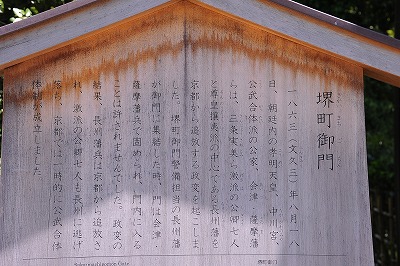 堺町御門
さかいまちごもん
一八六三(文久三)年八月一八
日、朝廷内の孝明天皇、中川宮、
公武合体派の公家、会津・薩摩藩
らは、三条実美ら激派の公卿七人
と尊皇攘夷派の中心である長州藩を
京都から追放する政変を起こしま
した。堺町御門警備担当の長州藩
が御門に集結した時、門は会津・
薩摩藩兵で固められ、門内に入る
ことは許されませんでした。政変の
結果、長州藩兵は京都から追放さ
れ、激派の公卿七人も長州に逃げ
落ち、京都では一時的に公武合体
体制が成立しました。
Sakaimachigomon Gate
堺町御門